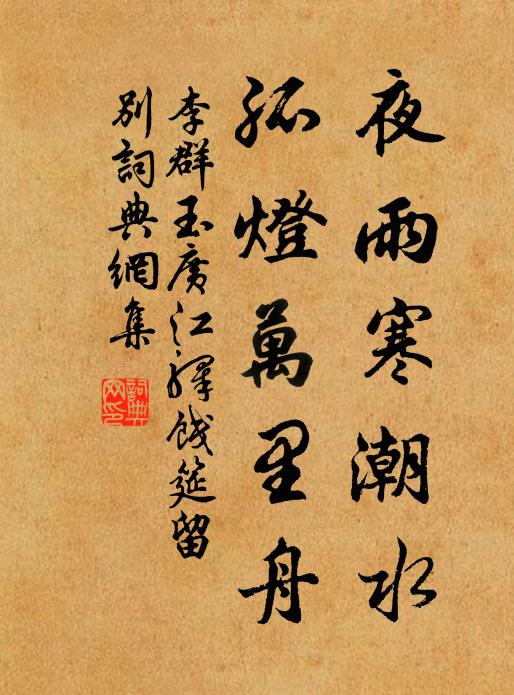 夜雨寒潮水
孤燈萬里舟
李群玉廣江驛餞筵留
別詞典網集
詞典網印